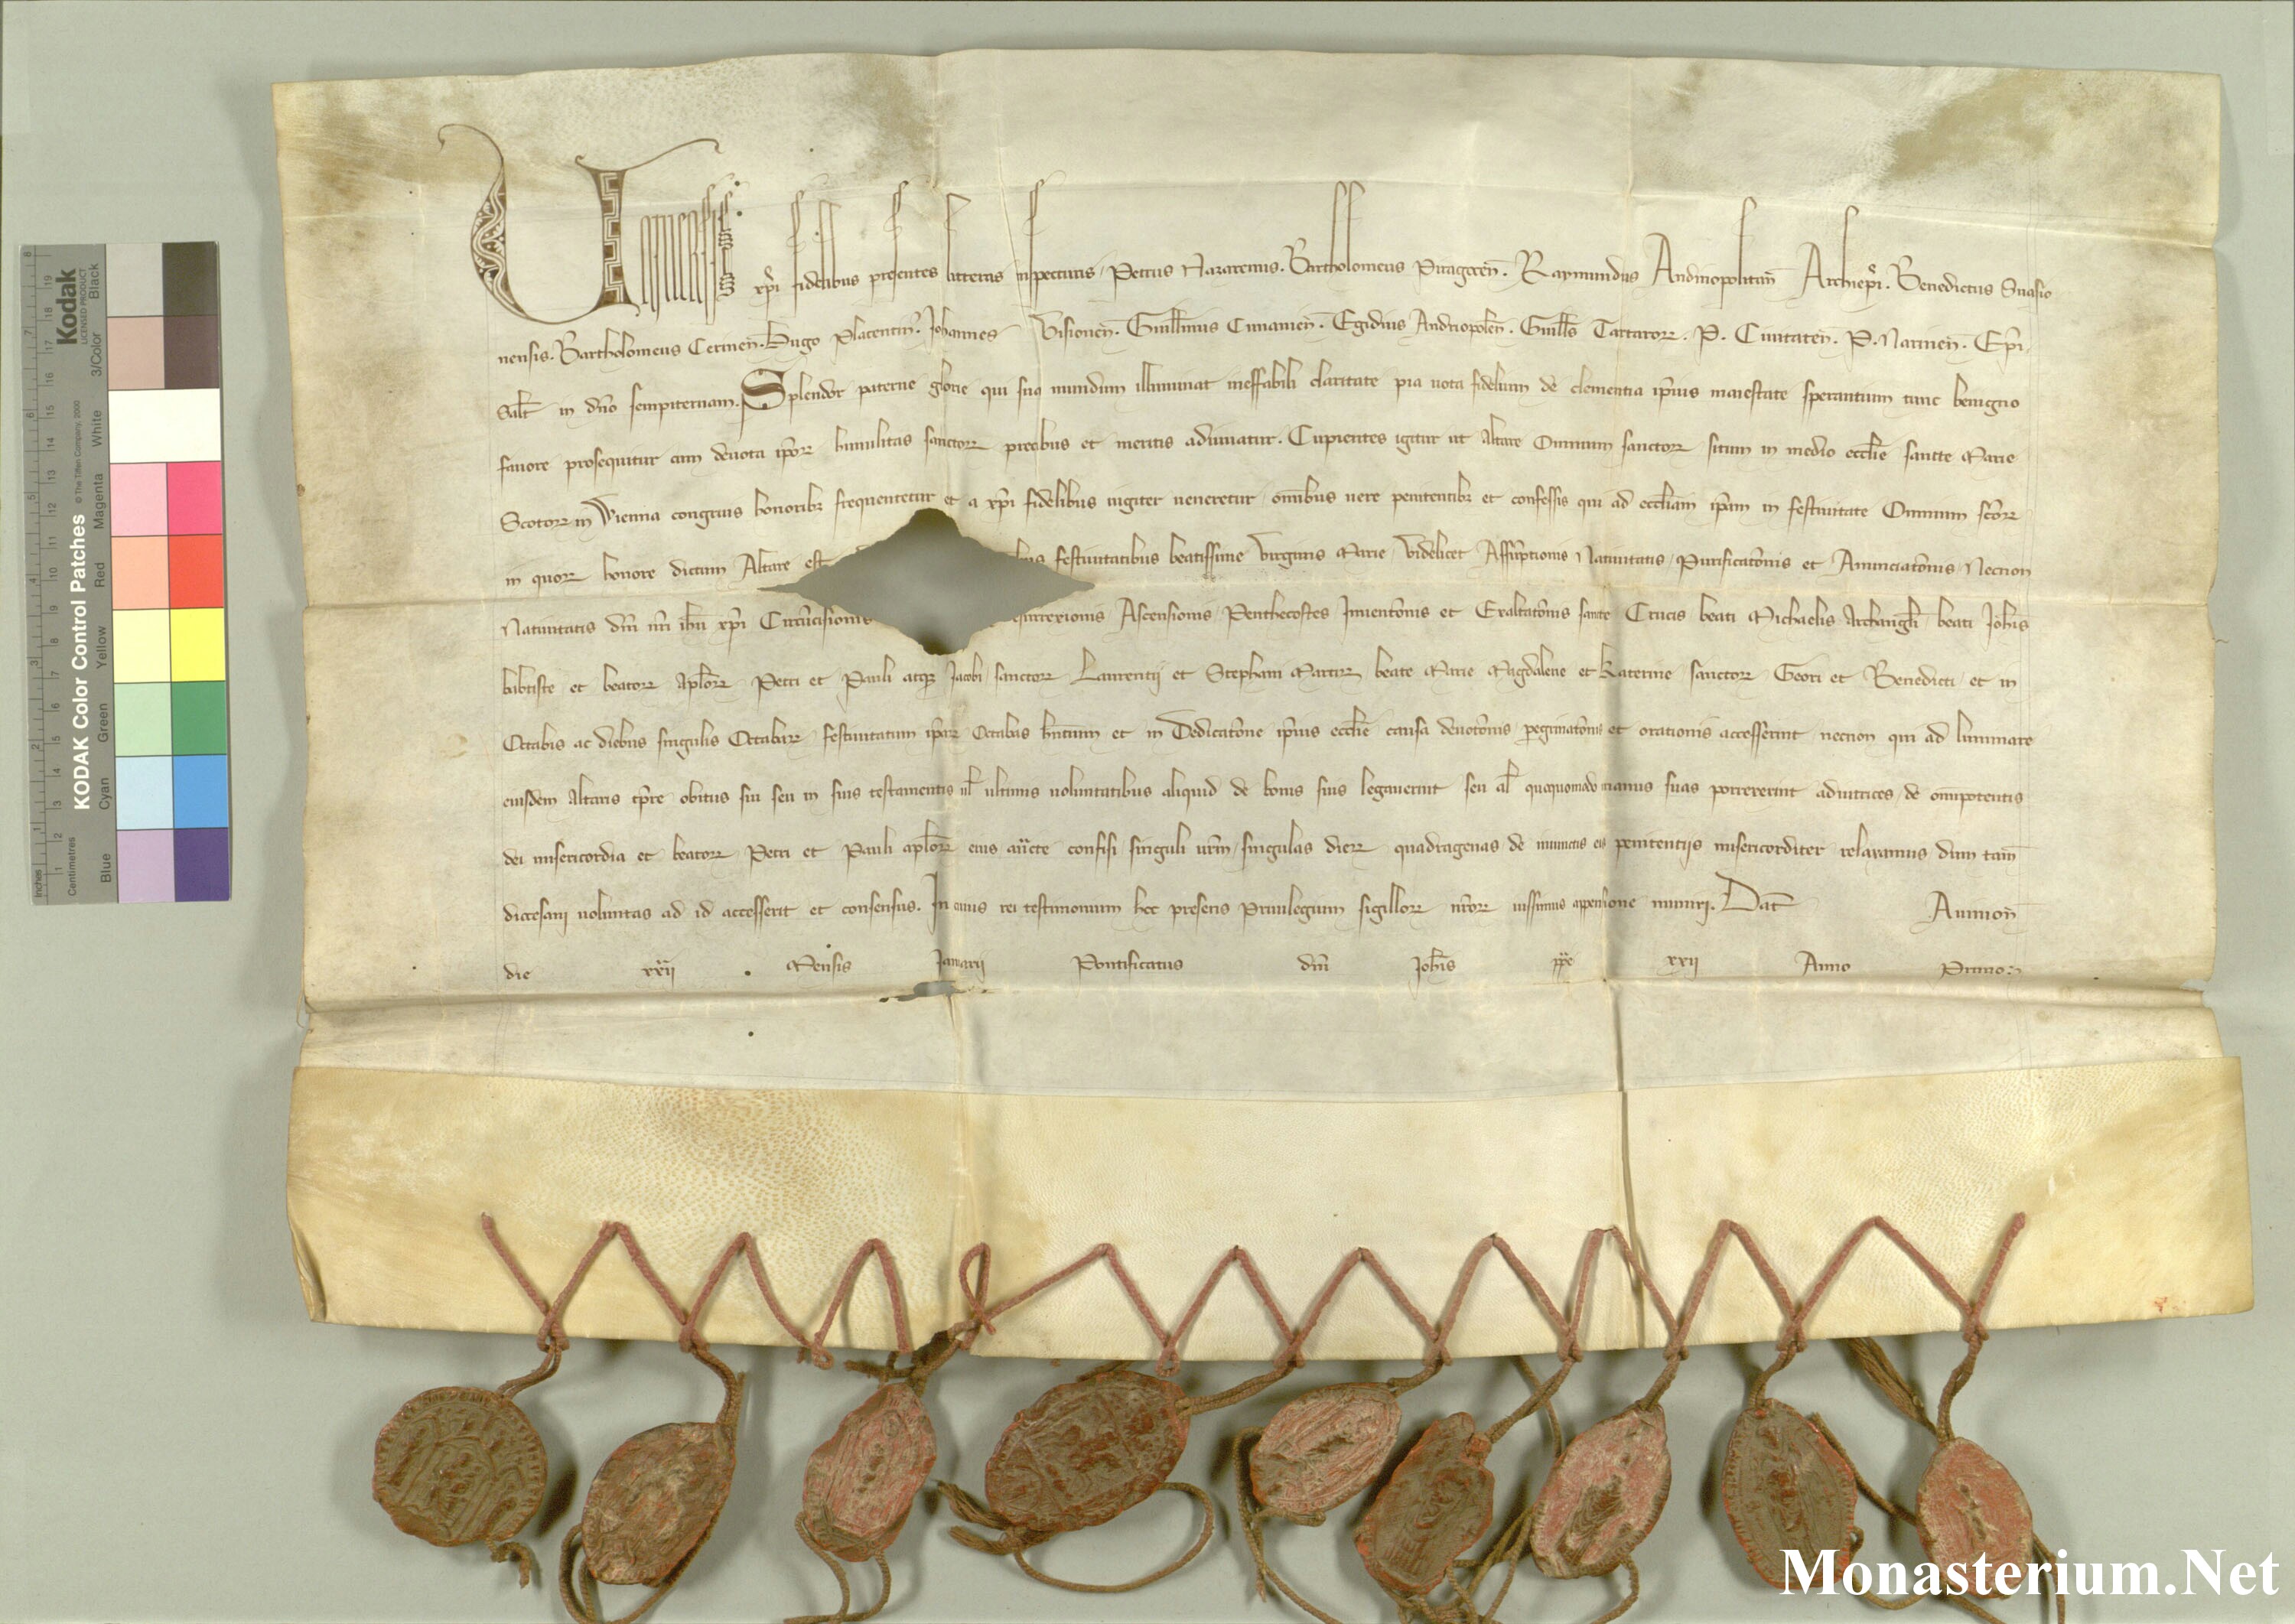 Uniuersis xpi fidelibus presentes litteras inspecturis Petrus Nazarenus. Bartholomeus Ragereñ. Raymundus Andrinopolitañ Archiepi. Benedictus Suasio
nensis. Bartholomeus Cermeñ. Hugo Placentiñ. Johannes Visioneñ. Guillmus Cimanieñ. Egidius Andriopoleñ. Guills Tartaror. P. Ciuitateñ. P. Narnieñ. Epi.
Salt in dno sempiternam. Splendor paterne glorie qui sua mundum illuminat ineffabili claritate pia uota fidelium de clementia ipius maiestate sperantium tunc benigno
fauore prosequitur cum deuota ipor humilitas sanctor precibus et meritis adiuuatur. Cupientes igitur ut altare Omnium sanctor situm in medio ecclie sancte Marie
Scotor in Vienna congruis honorib frequentetur et a xpi fidelibus iugiter ueneretur omibus uere penitentib et confessis qui ad eccliam ipam in festiuitate Omnium scor
in quor honore dictum Altare est festiuitatibus beatissime Virginis Marie videlicet Assumptionis Natiuitatis Purificatonis et Anunciatonis Necnon
Natiuitatis dni nri ihu xpi Circumcisionis esurrexionis Ascensionis Penthecostes Inuentonis et Exaltatonis sancte Crucis beati Michaelis Archangli beati Johis
babtiste et beator aplor Petri et Pauli atq Jacobi sanctor Laurentij et Stephani Martir beate Marie Magdalene et Katerine sanctor Geori et Benedicti et in
Octabis ac diebus singulis Octabar festiuitatum ipar Octabas hntium et in Dedicatone ipius ecclie causa deuotonis peregrinatonis et orationis accesserint necnon qui ad luminare
eiusdem altaris tpre obitus sui seu in suis testamentis ul ultimis uoluntatibus aliquid de bonis suis legauerint seu al quoquomodo manus suas porrexerint adiutrices de omipotentis
dei misericordia et beator Petri et Pauli aplor eius aucte confisi singuli nrm singulas dier quadragenas de iniunctis eis penitentijs misericorditer relaxamus dum tam
diocesani uoluntas ad id accesserit et consensus. In cuius rei testimonium hoc presens Priuilegium sigillor nror iussimus appensione muniri. Dat Auinioñ
die xxii Mensis Januarii Pontificatus dni Johis ppe xxii Anno Primo
inches
Centimetres
Kodak
LICENSED PRODUCT
KODAK Color Control Patches
© The Tiffen Company, 2000
Blue Cyan Green Yellow Red Magenta White 3/Color Black
Monasterium.Net